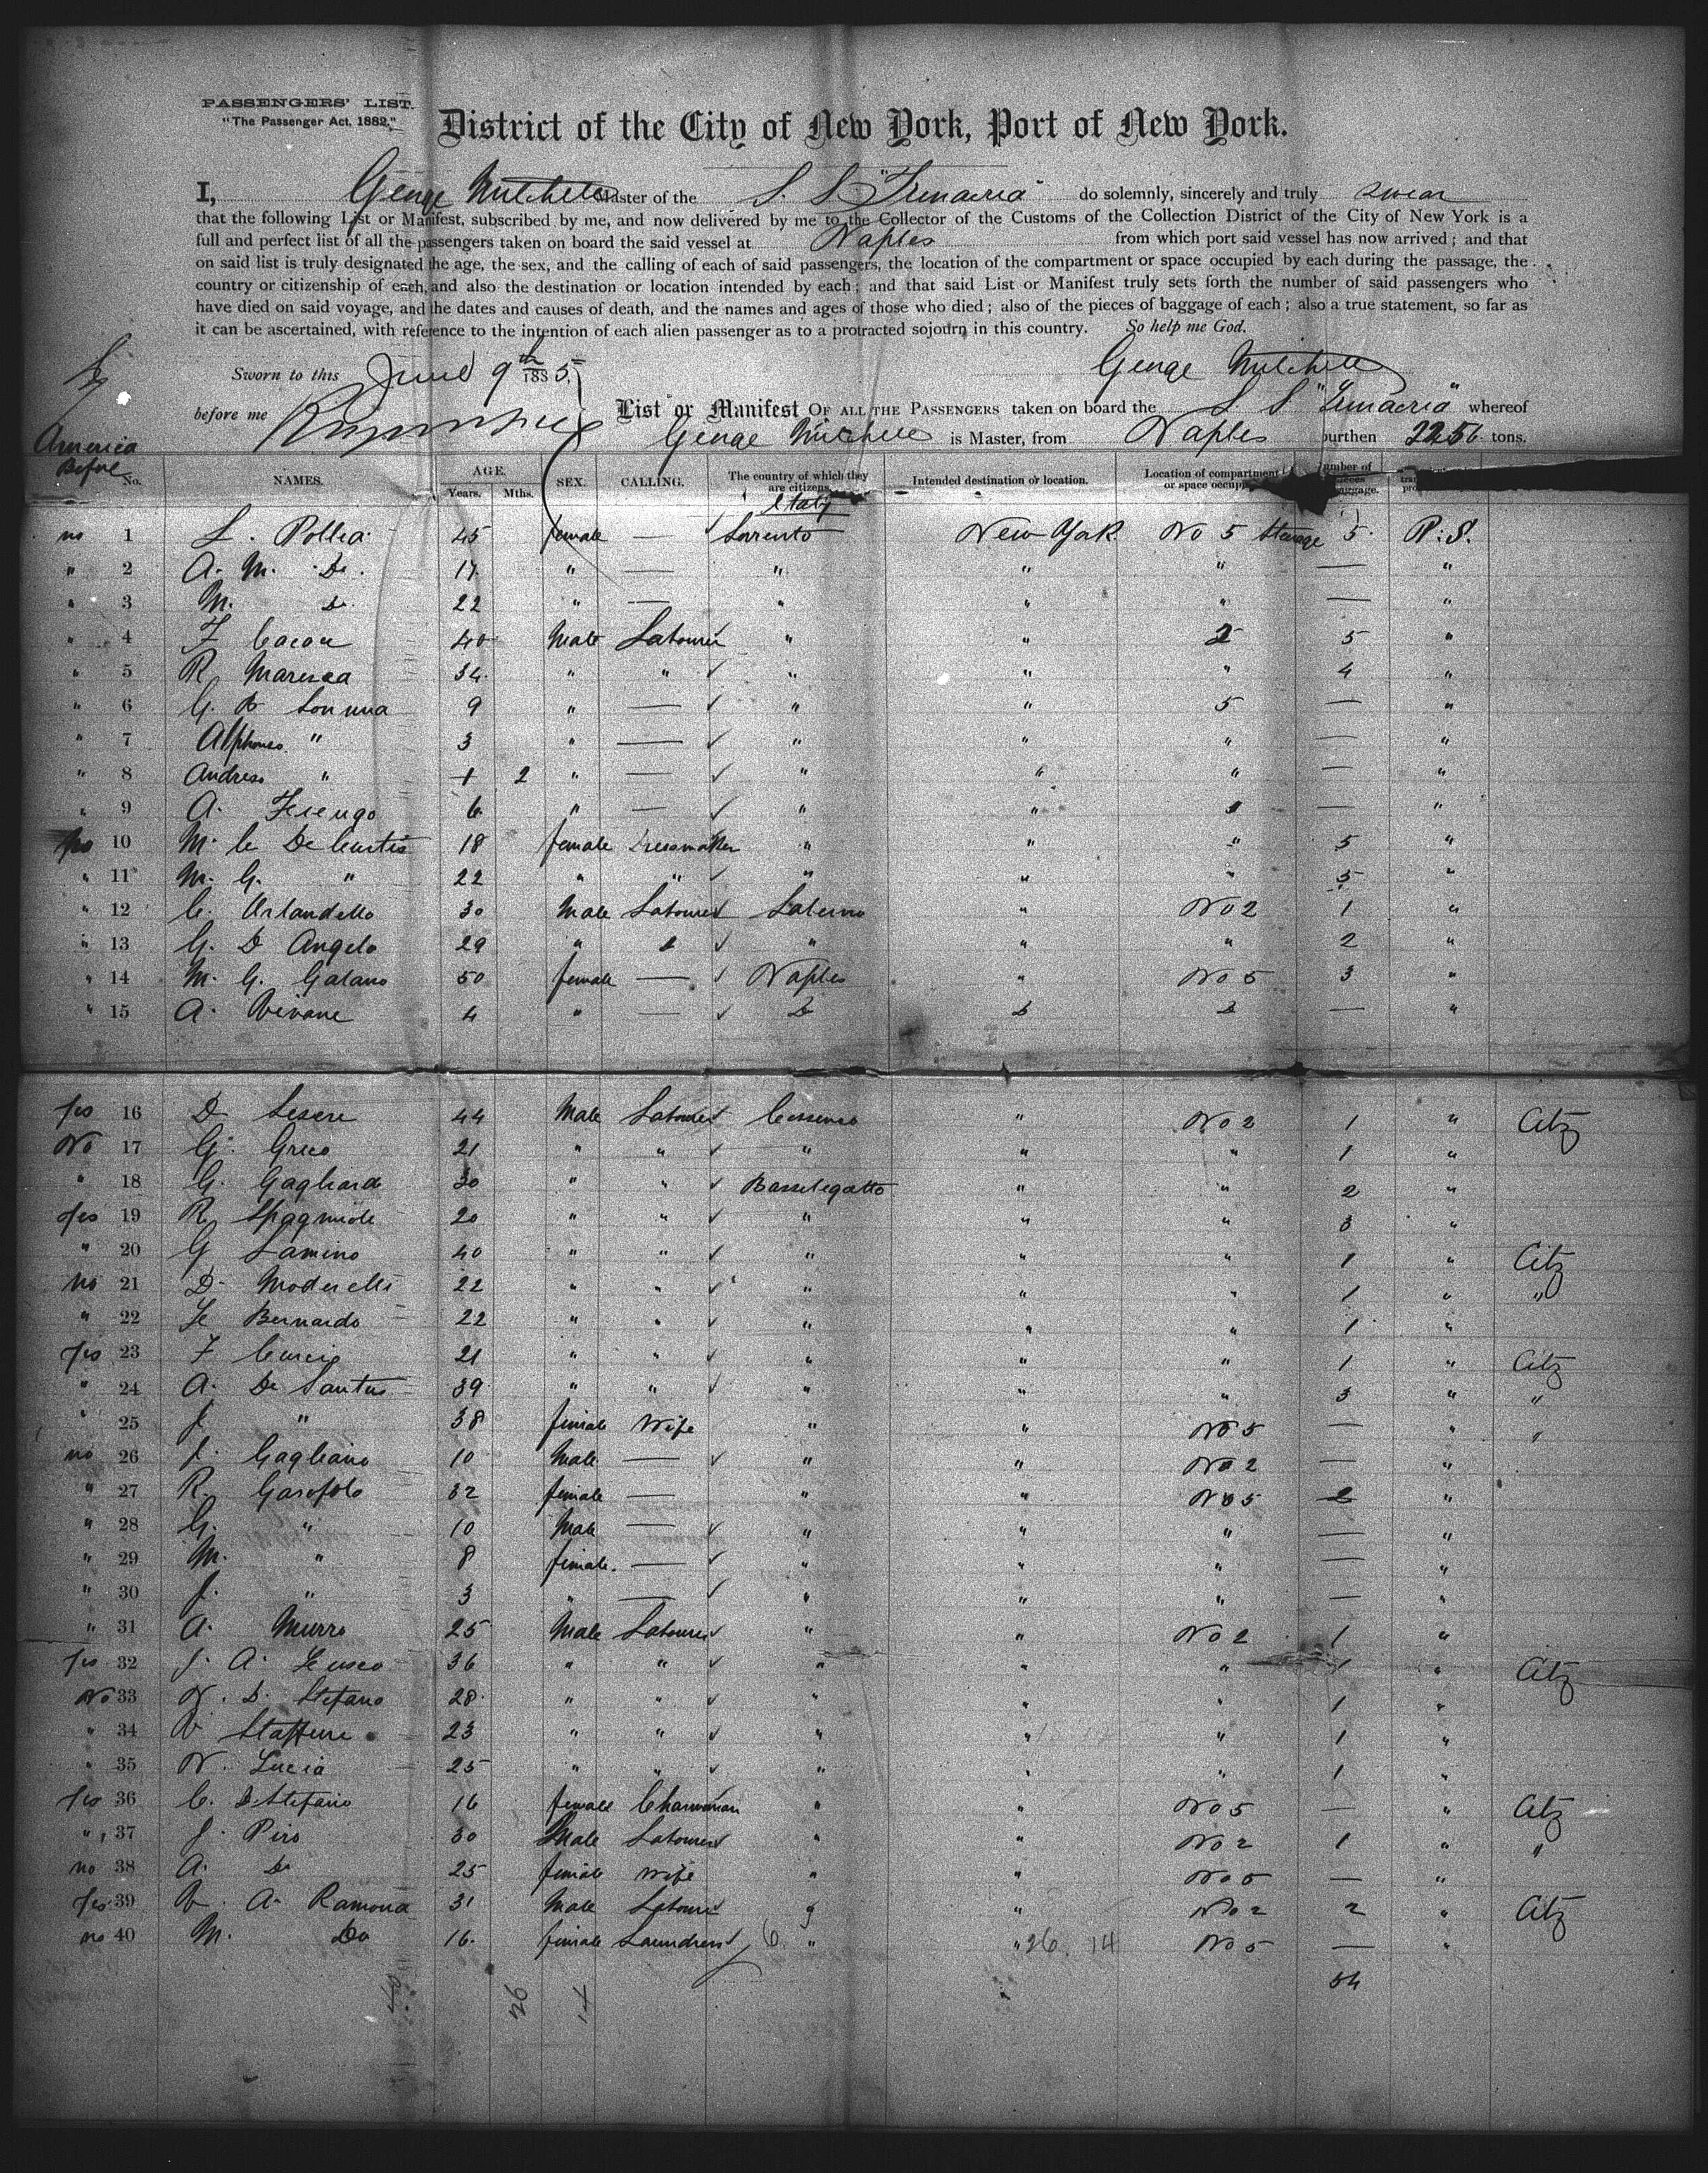 PASSENGERS' LIST.
"The Passenger Act, 1882."
District of the City of New York, Port of New York.
I, George Mitchell Master of the S. S. "Trinacria" do solemnly, sincerely and truly swear
that the following List or Manifest, subscribed by me, and now delivered by me to the Collector of the Customs of the Collection District of the City of New York is a
full and perfect list of all the passengers taken on board the said vessel at Naples from which port said vessel has now arrived; and that
on said list is truly designated the age, the sex, and the calling of each of said passengers, the location of the compartment or space occupied by each during the passage, the
country or citizenship of each, and also the destination or location intended by each; and that said List or Manifest truly sets forth the number of said passengers who
have died on said voyage, and the dates and causes of death, and the names and ages of those who died; also of the pieces of baggage of each; also a true statement, so far as
it can be ascertained, with reference to the intention of each alien passenger as to a protracted sojourn in this country. So help me God.
Sworn to this June 9th 1885, George Mitchell
before me List or Manifest OF ALL THE PASSENGERS taken on board the S. S. "Trinacria" whereof
George Mitchell is Master, from Naples burthen 2256 tons.
America
Before
No. NAMES. AGE. Years. Mths. SEX. CALLING. The country of which they are citizens. Intended destination or location. Location of compartment or space occup
Italy
no 1 L. Pollia 45 female — Sorrento New York No 5 Steerage 5 P. S.
" 2 A. M. Do. 17 " — " " " — "
" 3 M. Do. 22 " — " " " — "
" 4 F 40 Male Labourer " " 2 5 "
" 5 R Maresca 34 " " " " " 4 "
" 6 G. B 9 " — " " 5 — "
" 7 Alphonso " 3 " — " " " — "
" 8 Andrea " 1 2 " — " " " — "
" 9 A. 6 " — " " — "
No 10 M. C De Curtis 18 female Dressmaker " " " 5 "
" 11 M. G. " 22 " " " " " 5 "
" 12 C. Orlandello 30 Male Labourer Salerno " No 2 1 "
" 13 G. D Angelo 29 " " " " 2 "
" 14 M. G. Galano 50 female — Naples " No 5 3 "
" 15 A. Vivane 4 " — Do Do Do — "
Yes 16 D 44 Male Labourer Cosenza " No 2 1 " Citz
No 17 G. Greco 21 " " " " " 1 "
" 18 G. Gagliard 30 " " " " 2 "
Yes 19 R 20 " " " " " 3 "
" 20 G Lamino 40 " " " " " 1 " Citz
No 21 D. Moderelli 22 " " " " " 1 " "
" 22 Bernardo 22 " " " " " 1 "
Yes 23 F Curcio 21 " " " " " 1 " Citz
" 24 A. De Santis 39 " " " " " 3 " "
" 25 J. " 38 female Wife " " No 5 — " "
no 26 J. Gagliano 10 Male — " " No 2 — "
" 27 R. Garofolo 32 female — " " No 5 2 "
" 28 G. " 10 Male — " " " — "
" 29 M. " 8 female. — " " " — "
" 30 J. " 3 " — " " " — "
" 31 A. Murro 25 Male Labourer " " No 2 1 "
Yes 32 J. A. 36 " " " " " 1 " Citz
No 33 N. D. Stefano 28 " " " " " 1 "
" 34 V 23 " " " " " 1 "
" 35 N. Lucia 25 " " " " " 1 "
Yes 36 C. D. Stefano 16 female Charwoman " " No 5 — " Citz
" 37 J. Piro 30 Male Labourer " " No 2 1 " "
no 38 A. Do 25 female Wife " " No 5 — "
Yes 39 V. A. Ramona 31 Male Labourer " " No 2 2 " Citz
no 40 M. Do 16 female Laundress 6 " " 26. 14 No 5 — "
54
40 26 14